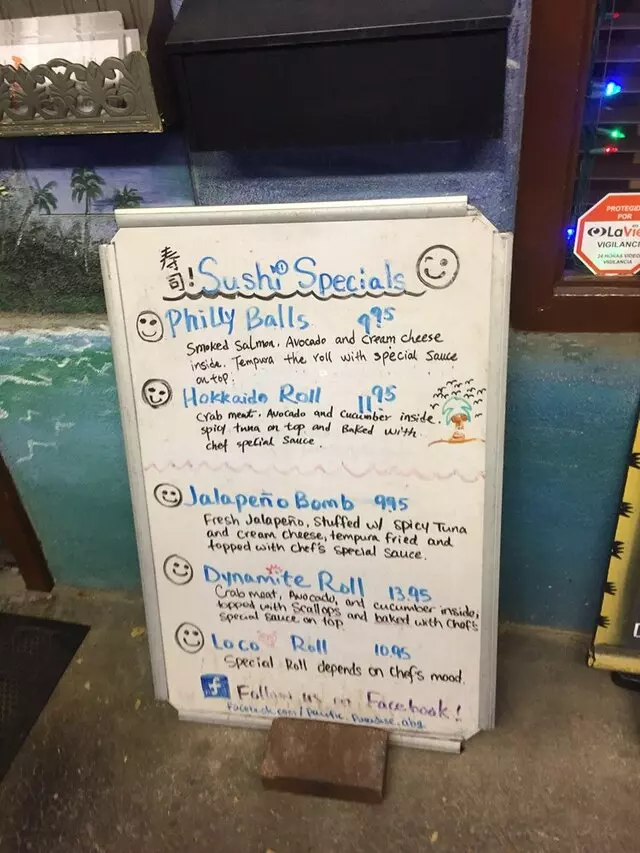 寿司! Sushi Specials
Philly Balls 9.95
Smoked Salmon, Avocado and cream cheese
inside. Tempura the roll with special sauce
on top.
Hokkaido Roll 11.95
Crab meat, Avocado and cucumber inside.
spicy tuna on top and Baked with
chef special sauce.
Jalapeño Bomb 9.95
Fresh Jalapeño, Stuffed w/ Spicy Tuna
and Cream Cheese, tempura fried and
topped with chef's special sauce.
Dynamite Roll 13.95
Crab meat, Avocado, and cucumber inside,
topped with Scallops and baked with Chef's
special sauce on top.
Loco Roll 10.95
Special Roll depends on Chef's mood.
f Follow us on Facebook!
Facebook.com/pacific.paradise.abq
PROTEGIDO
POR
VIGILANCI
24 HORAS VIDEO
VIGILANCIA